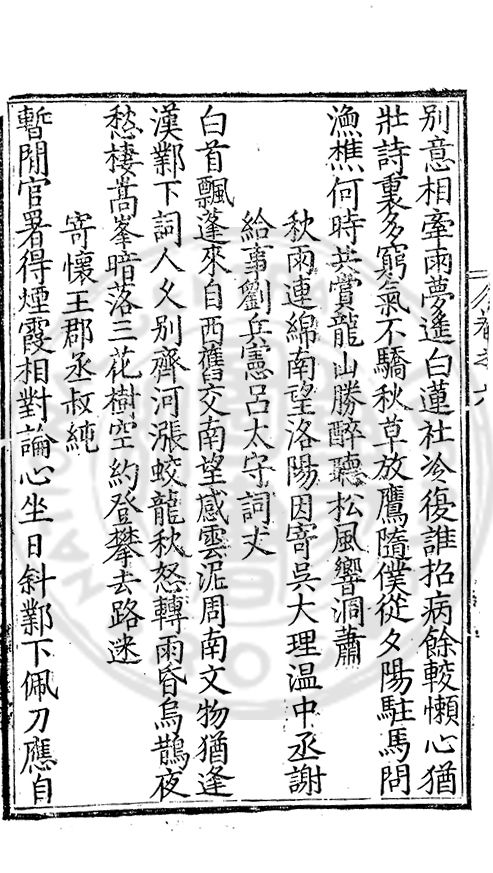 別意相牽兩夢遙白蓮社冷復誰招病餘較懶心猶
壯詩裏多窮氣不驕秋草放鷹隨僕從夕陽駐馬問
漁樵何時共賞龍山勝醉聽松風響洞蕭
秋雨連綿南望洛陽因寄吳大理温中丞謝
給事劉兵憲呂太守詞丈
白首飄蓬來自西舊交南望感雲泥周南文物猶逢
漢鄴下詞人久別齊河漲蛟龍秋怒轉雨昏烏鵲夜
愁棲嵩峯暗落三花樹空約登攀去路迷
寄懷王郡丞叔純
暫閒官署得煙霞相對論心坐日斜鄴下佩刀應自